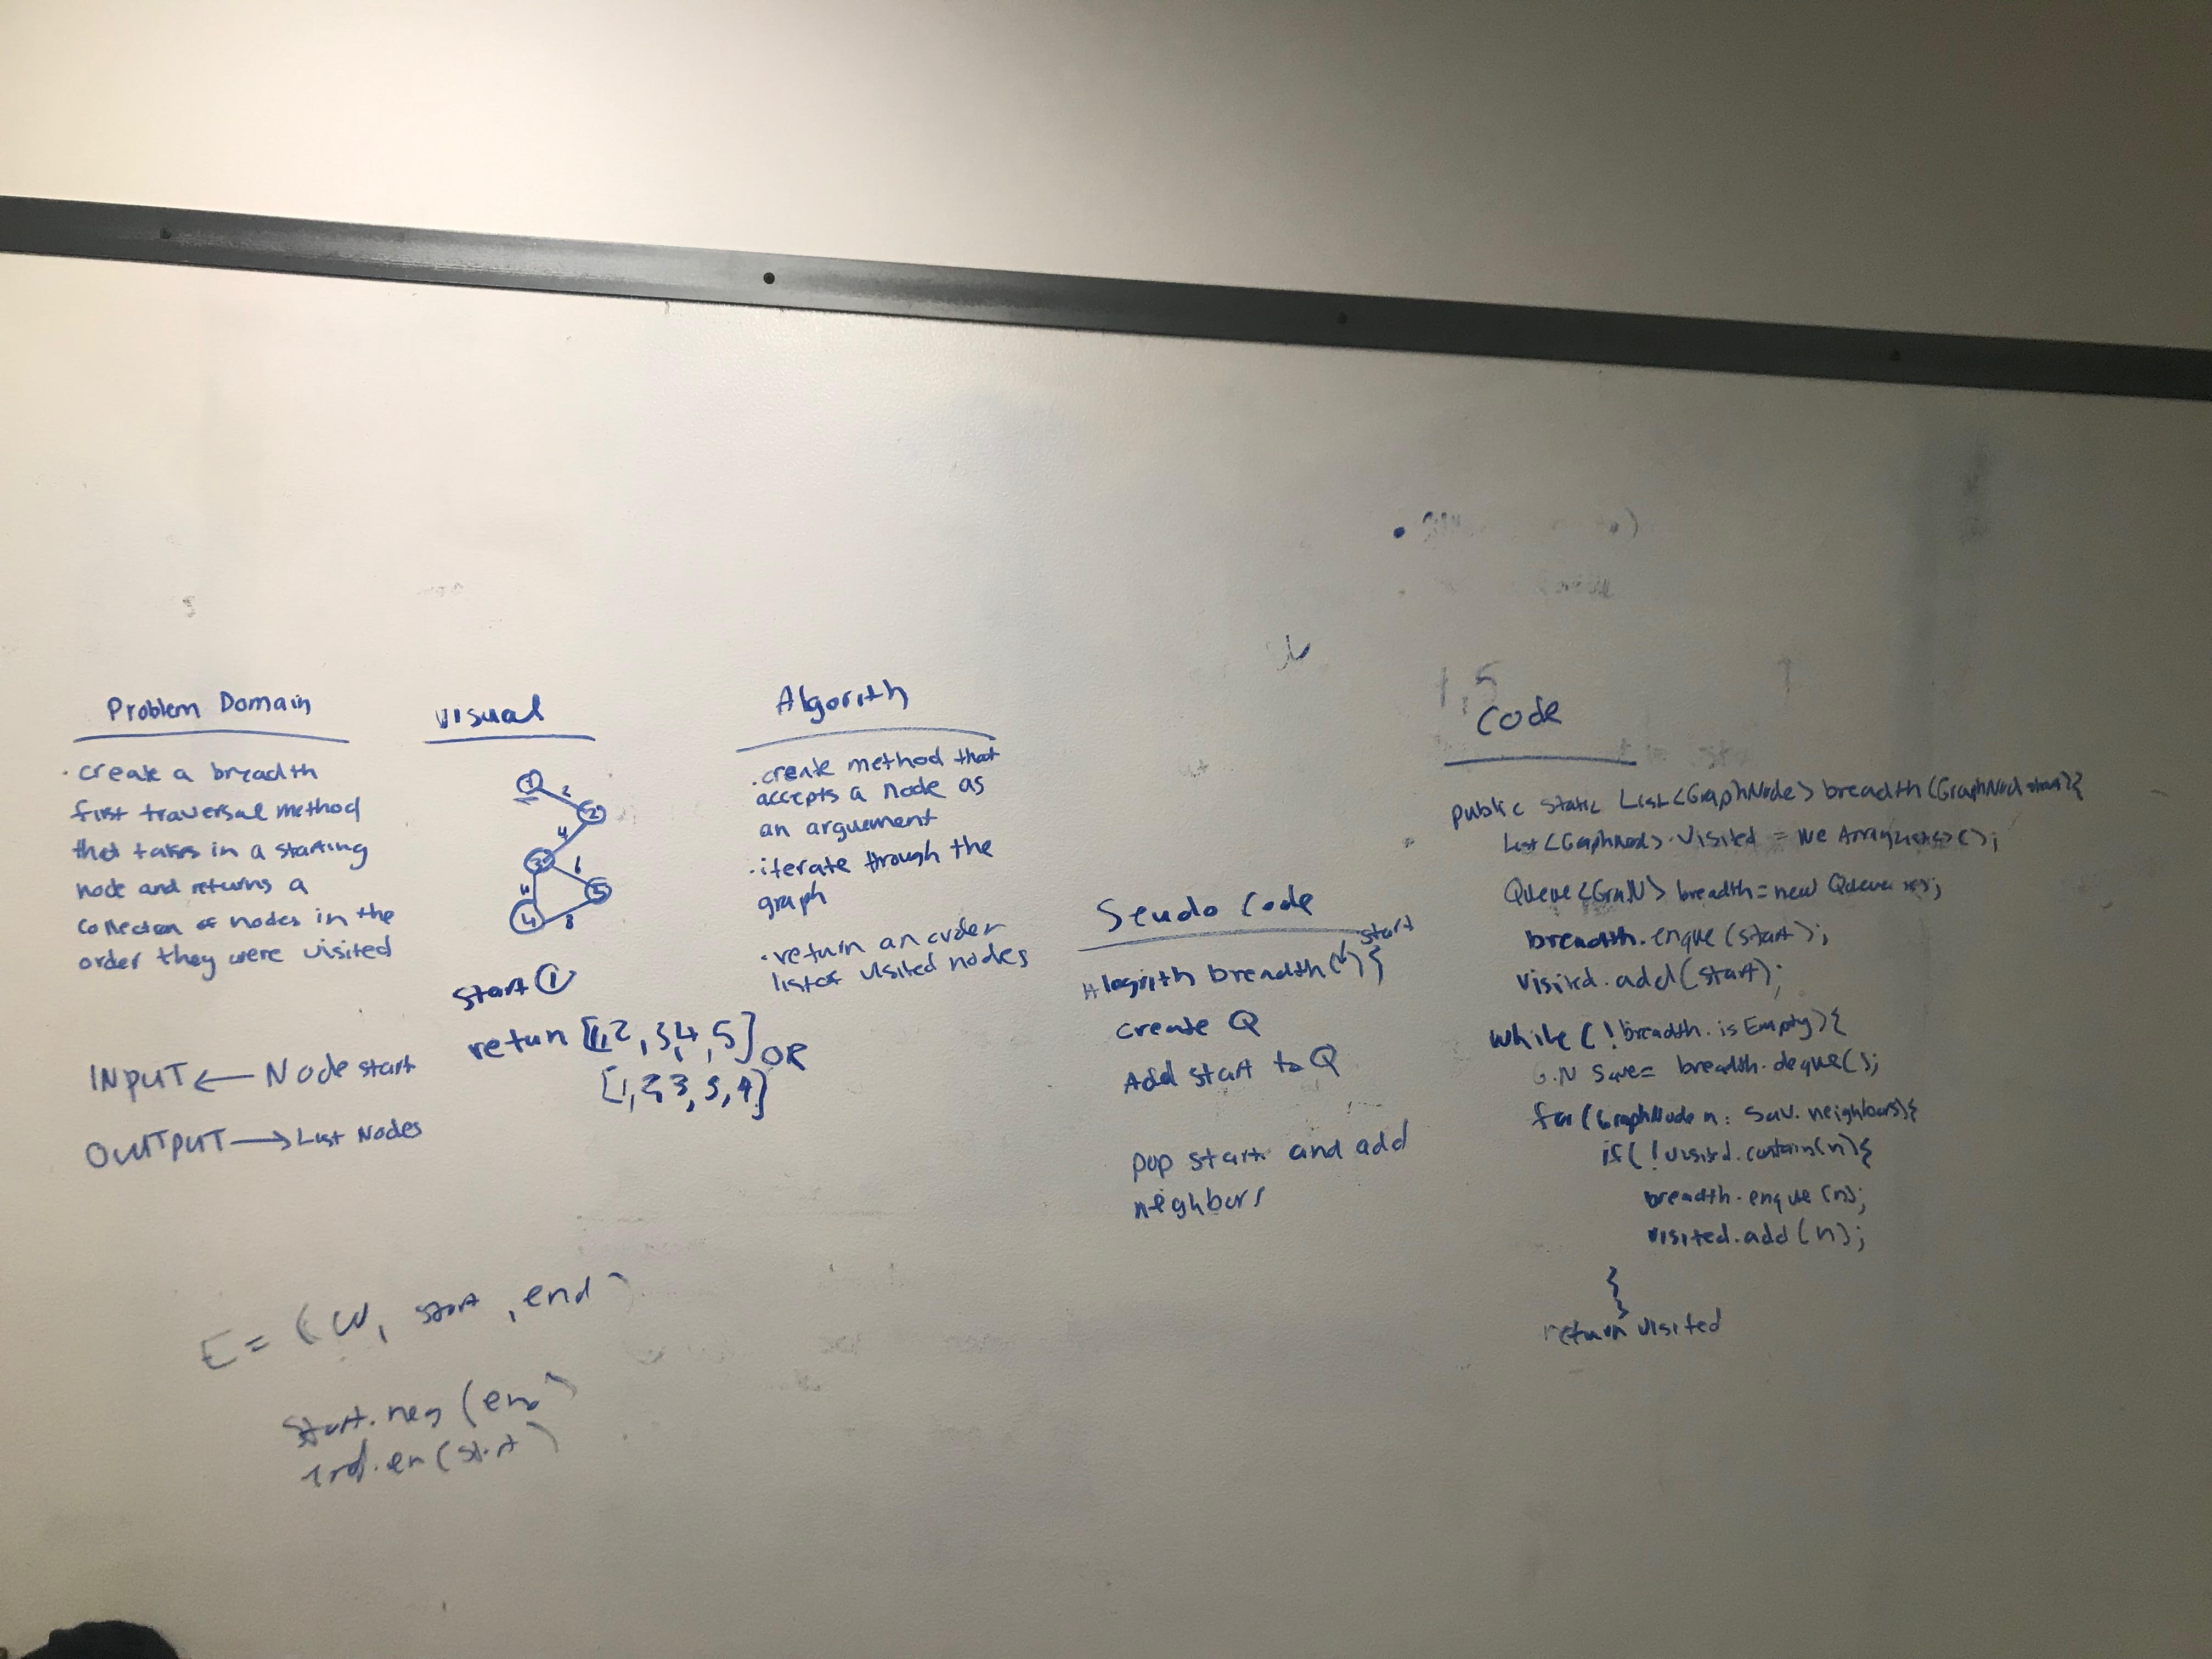 Problem Domain
· create a breadth
first traversal method
that takes in a starting
node and returns a
collection of nodes in the
order they were visited
INPUT ← Node start
OUTPUT → List Nodes
visual
1
2
2
4
3
6
5
4
8
start 1
return [1,2,3,4,5] OR
[1,2,3,5,4]
Algorith
· create method that
accepts a node as
an arguement
· iterate through the
graph
· return an order
list of visited nodes
Seudo Code
start
Alogrith breadth( ) {
create Q
Add start to Q
pop start and add
neighbors
1,5
Code
public static List<GraphNode> breadth(GraphNod start){
List<GraphNod> visited = Ne ArrayList<>();
Queue<Gra.N> breadth = new Queue<>();
breadth.enque(start);
visited.add(start);
while(!breadth.isEmpty){
G.N Save = breadth.deque();
for(GraphNode n: Sav.neighbors){
if(!visited.contains(n){
breadth.enque(n);
visited.add(n);
}
}
return visited
E = (w, start, end)
start.neg(end)
end.en(start)